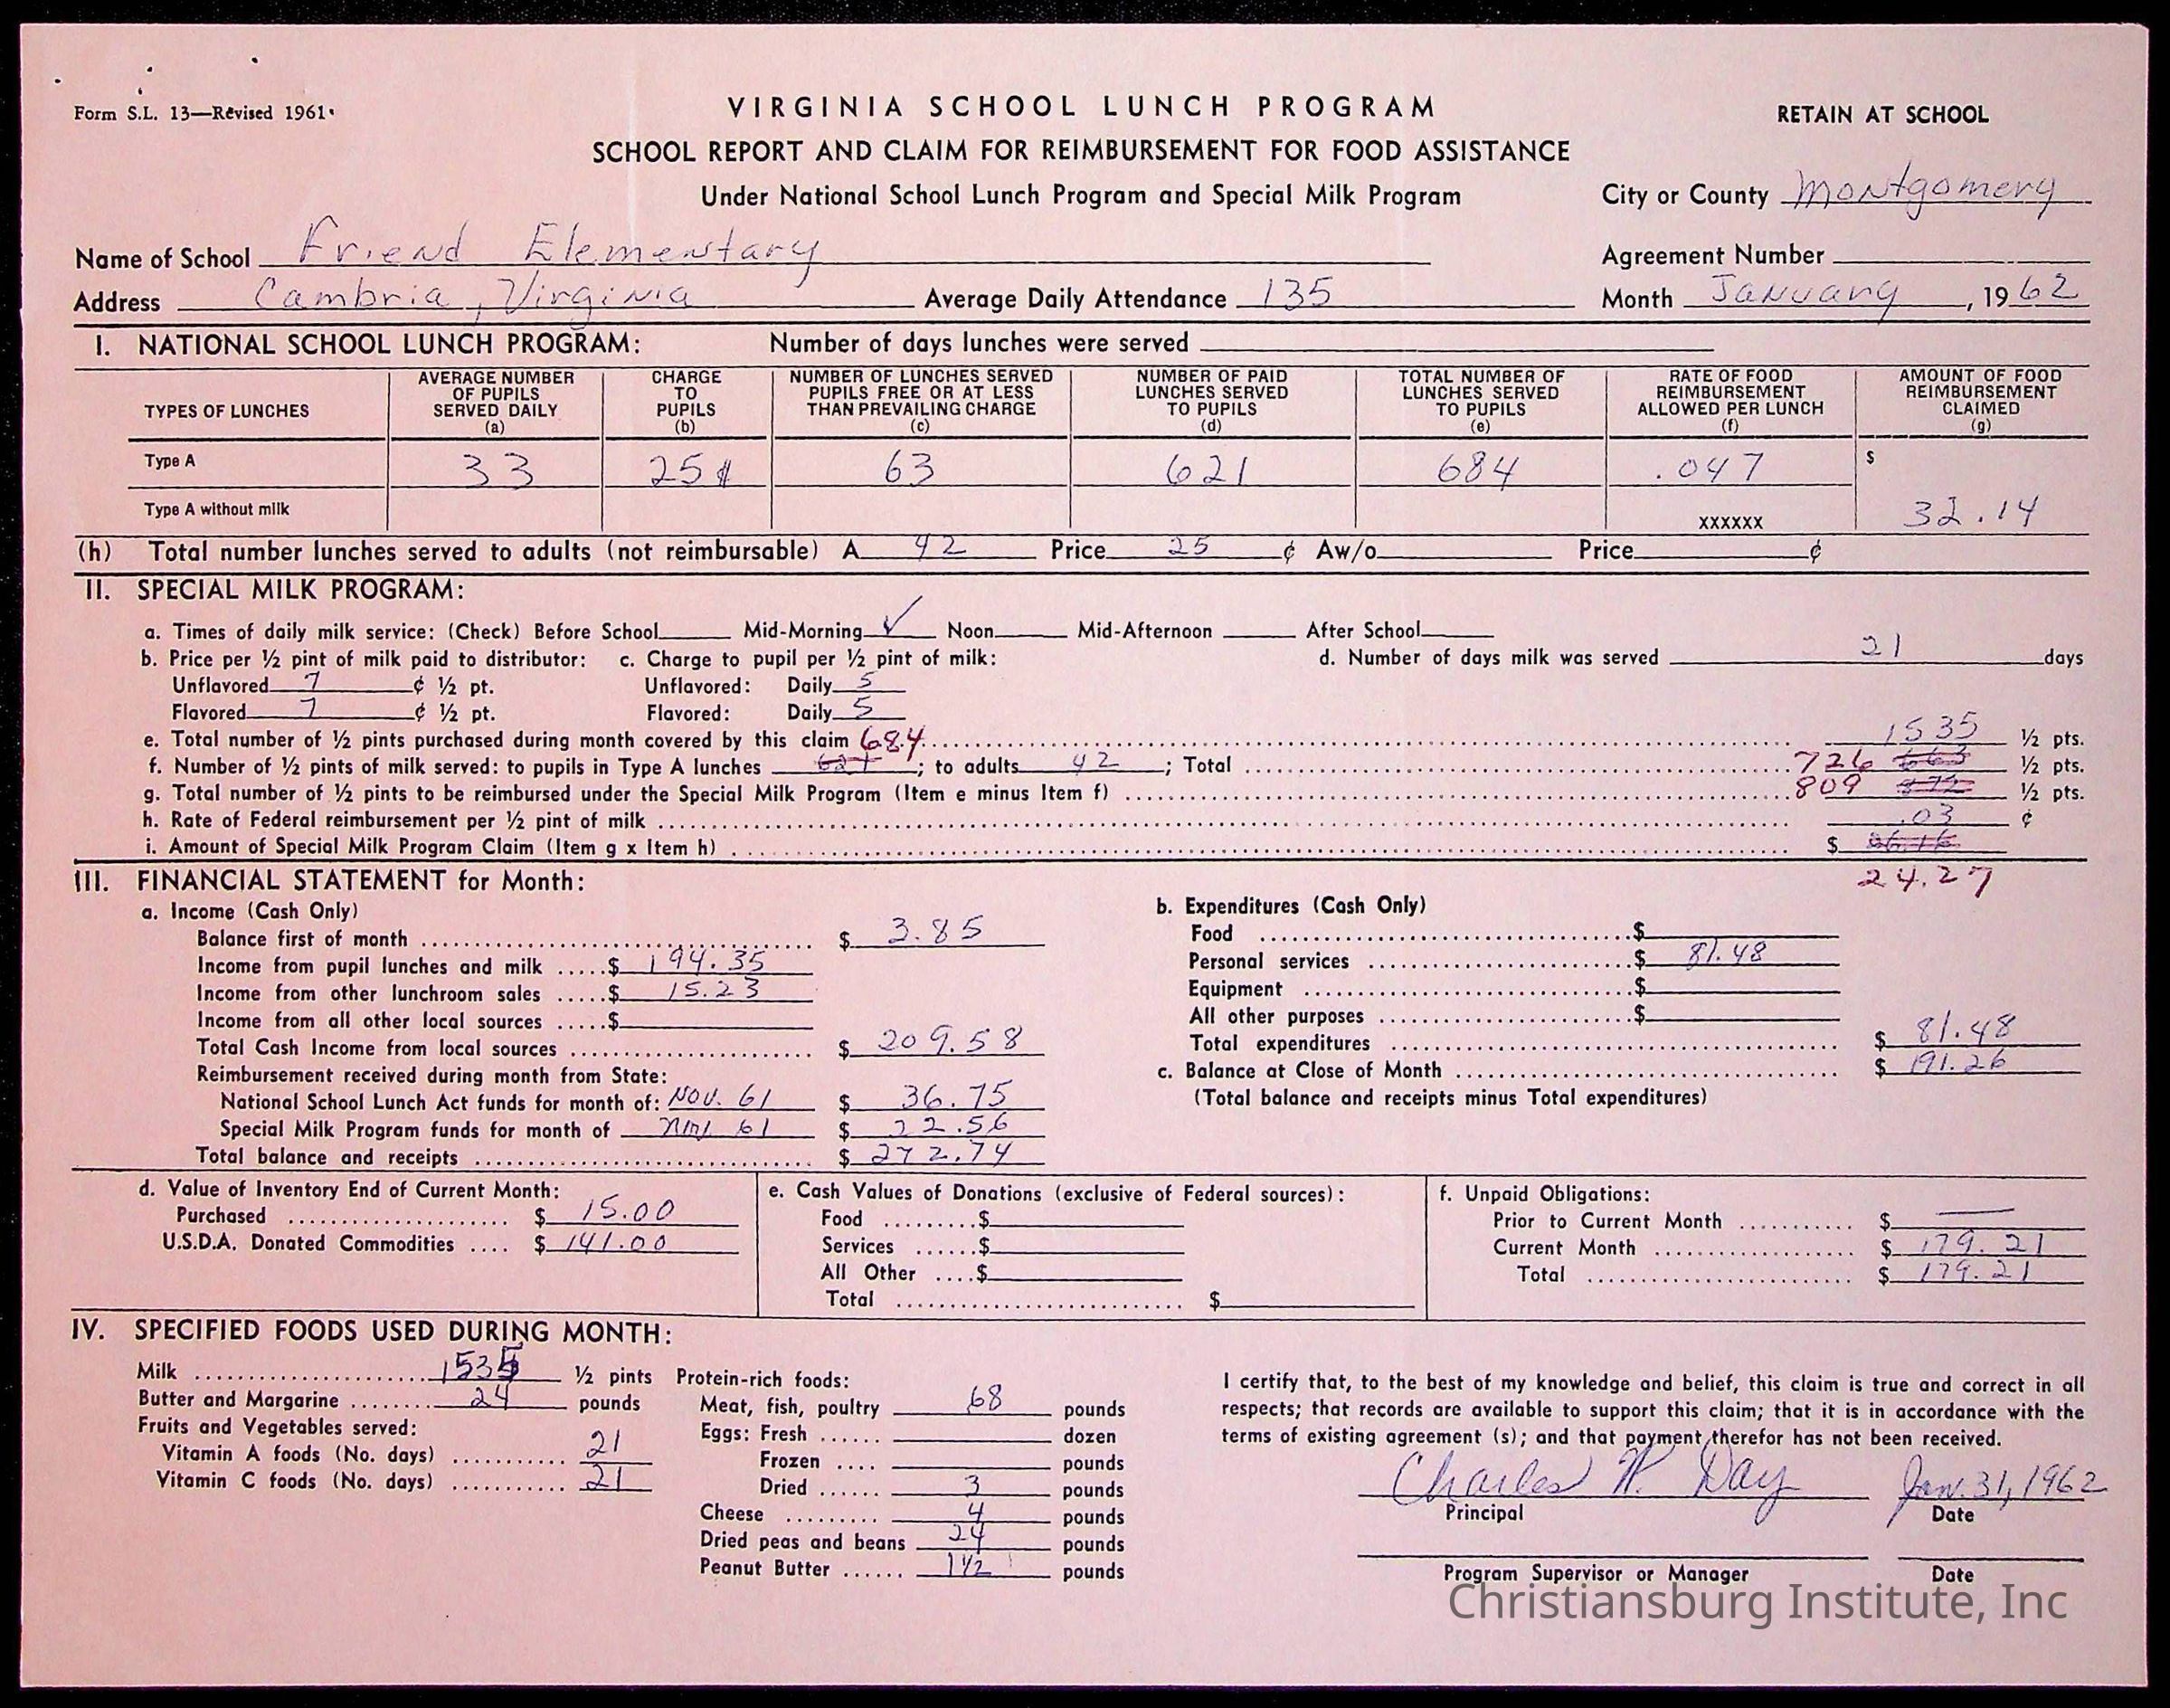 Form S.L. 13—Revised 1961
VIRGINIA SCHOOL LUNCH PROGRAM
RETAIN AT SCHOOL
SCHOOL REPORT AND CLAIM FOR REIMBURSEMENT FOR FOOD ASSISTANCE
Under National School Lunch Program and Special Milk Program
City or County Montgomery
Name of School Friend Elementary
Agreement Number
Address Cambria, Virginia Average Daily Attendance 135 Month January, 1962
I. NATIONAL SCHOOL LUNCH PROGRAM: Number of days lunches were served
TYPES OF LUNCHES
AVERAGE NUMBER OF PUPILS SERVED DAILY (a)
CHARGE TO PUPILS (b)
NUMBER OF LUNCHES SERVED PUPILS FREE OR AT LESS THAN PREVAILING CHARGE (c)
NUMBER OF PAID LUNCHES SERVED TO PUPILS (d)
TOTAL NUMBER OF LUNCHES SERVED TO PUPILS (e)
RATE OF FOOD REIMBURSEMENT ALLOWED PER LUNCH (f)
AMOUNT OF FOOD REIMBURSEMENT CLAIMED (g)
Type A 33 25¢ 63 621 684 .047 $
Type A without milk XXXXXX 32.14
(h) Total number lunches served to adults (not reimbursable) A 42 Price 25 ¢ Aw/o Price ¢
II. SPECIAL MILK PROGRAM:
a. Times of daily milk service: (Check) Before School Mid-Morning ✓ Noon Mid-Afternoon After School
b. Price per ½ pint of milk paid to distributor: c. Charge to pupil per ½ pint of milk: d. Number of days milk was served 21 days
Unflavored 7 ¢ ½ pt. Unflavored: Daily 5
Flavored 7 ¢ ½ pt. Flavored: Daily 5
e. Total number of ½ pints purchased during month covered by this claim 1535 ½ pts.
f. Number of ½ pints of milk served: to pupils in Type A lunches 684 621; to adults 42; Total 726 663 ½ pts.
g. Total number of ½ pints to be reimbursed under the Special Milk Program (Item e minus Item f) 809 872 ½ pts.
h. Rate of Federal reimbursement per ½ pint of milk .03 ¢
i. Amount of Special Milk Program Claim (Item g x Item h) $ 26.16
24.27
III. FINANCIAL STATEMENT for Month:
a. Income (Cash Only)
Balance first of month $ 3.85
Income from pupil lunches and milk $ 194.35
Income from other lunchroom sales $ 15.23
Income from all other local sources $
Total Cash Income from local sources $ 209.58
Reimbursement received during month from State:
National School Lunch Act funds for month of: Nov. 61 $ 36.75
Special Milk Program funds for month of 61 $ 22.56
Total balance and receipts $ 272.74
b. Expenditures (Cash Only)
Food $
Personal services $ 81.48
Equipment $
All other purposes $
Total expenditures $ 81.48
c. Balance at Close of Month $ 191.26
(Total balance and receipts minus Total expenditures)
d. Value of Inventory End of Current Month:
Purchased $ 15.00
U.S.D.A. Donated Commodities $ 141.00
e. Cash Values of Donations (exclusive of Federal sources):
Food $
Services $
All Other $
Total $
f. Unpaid Obligations:
Prior to Current Month $ —
Current Month $ 179.21
Total $ 179.21
IV. SPECIFIED FOODS USED DURING MONTH:
Milk 1535 ½ pints
Butter and Margarine 24 pounds
Fruits and Vegetables served:
Vitamin A foods (No. days) 21
Vitamin C foods (No. days) 21
Protein-rich foods:
Meat, fish, poultry 68 pounds
Eggs: Fresh dozen
Frozen pounds
Dried 3 pounds
Cheese 4 pounds
Dried peas and beans 24 pounds
Peanut Butter 1½ pounds
I certify that, to the best of my knowledge and belief, this claim is true and correct in all
respects; that records are available to support this claim; that it is in accordance with the
terms of existing agreement (s); and that payment therefor has not been received.
Charles W. Day Jan. 31, 1962
Principal Date
Program Supervisor or Manager Date
Christiansburg Institute, Inc